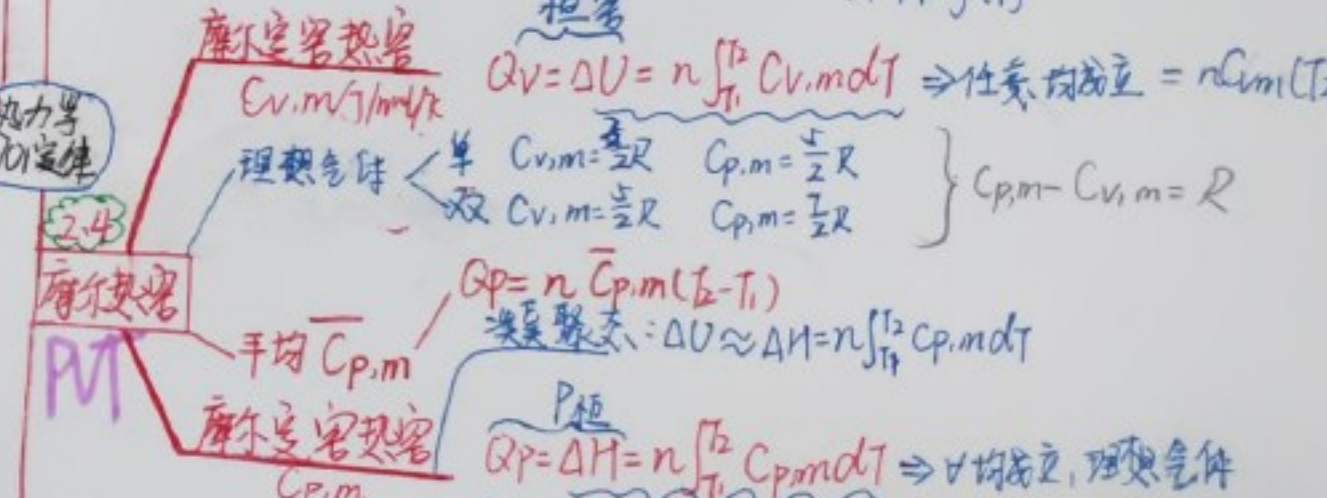 恒容
摩尔定容热容
Cv,m/J/mol/k
Qv=ΔU=n∫T₁T₂ Cv,mdT ⇒任意均成立 = nCvm(T₂
热力学
定律
理想气体
单 Cv,m=3/2R Cp,m=5/2R
双 Cv,m=5/2R Cp,m=7/2R
} Cp,m-Cv,m=R
2.4
摩尔热容
PVT
平均 C̅p,m
Qp=n C̅p,m(T₂-T₁)
凝聚态:ΔU≈ΔH=n∫T₁T₂ Cp,mdT
摩尔定容热容
Cp,m
P恒
Qp=ΔH=n∫T₁T₂ Cp,mdT ⇒∀均成立,理想气体